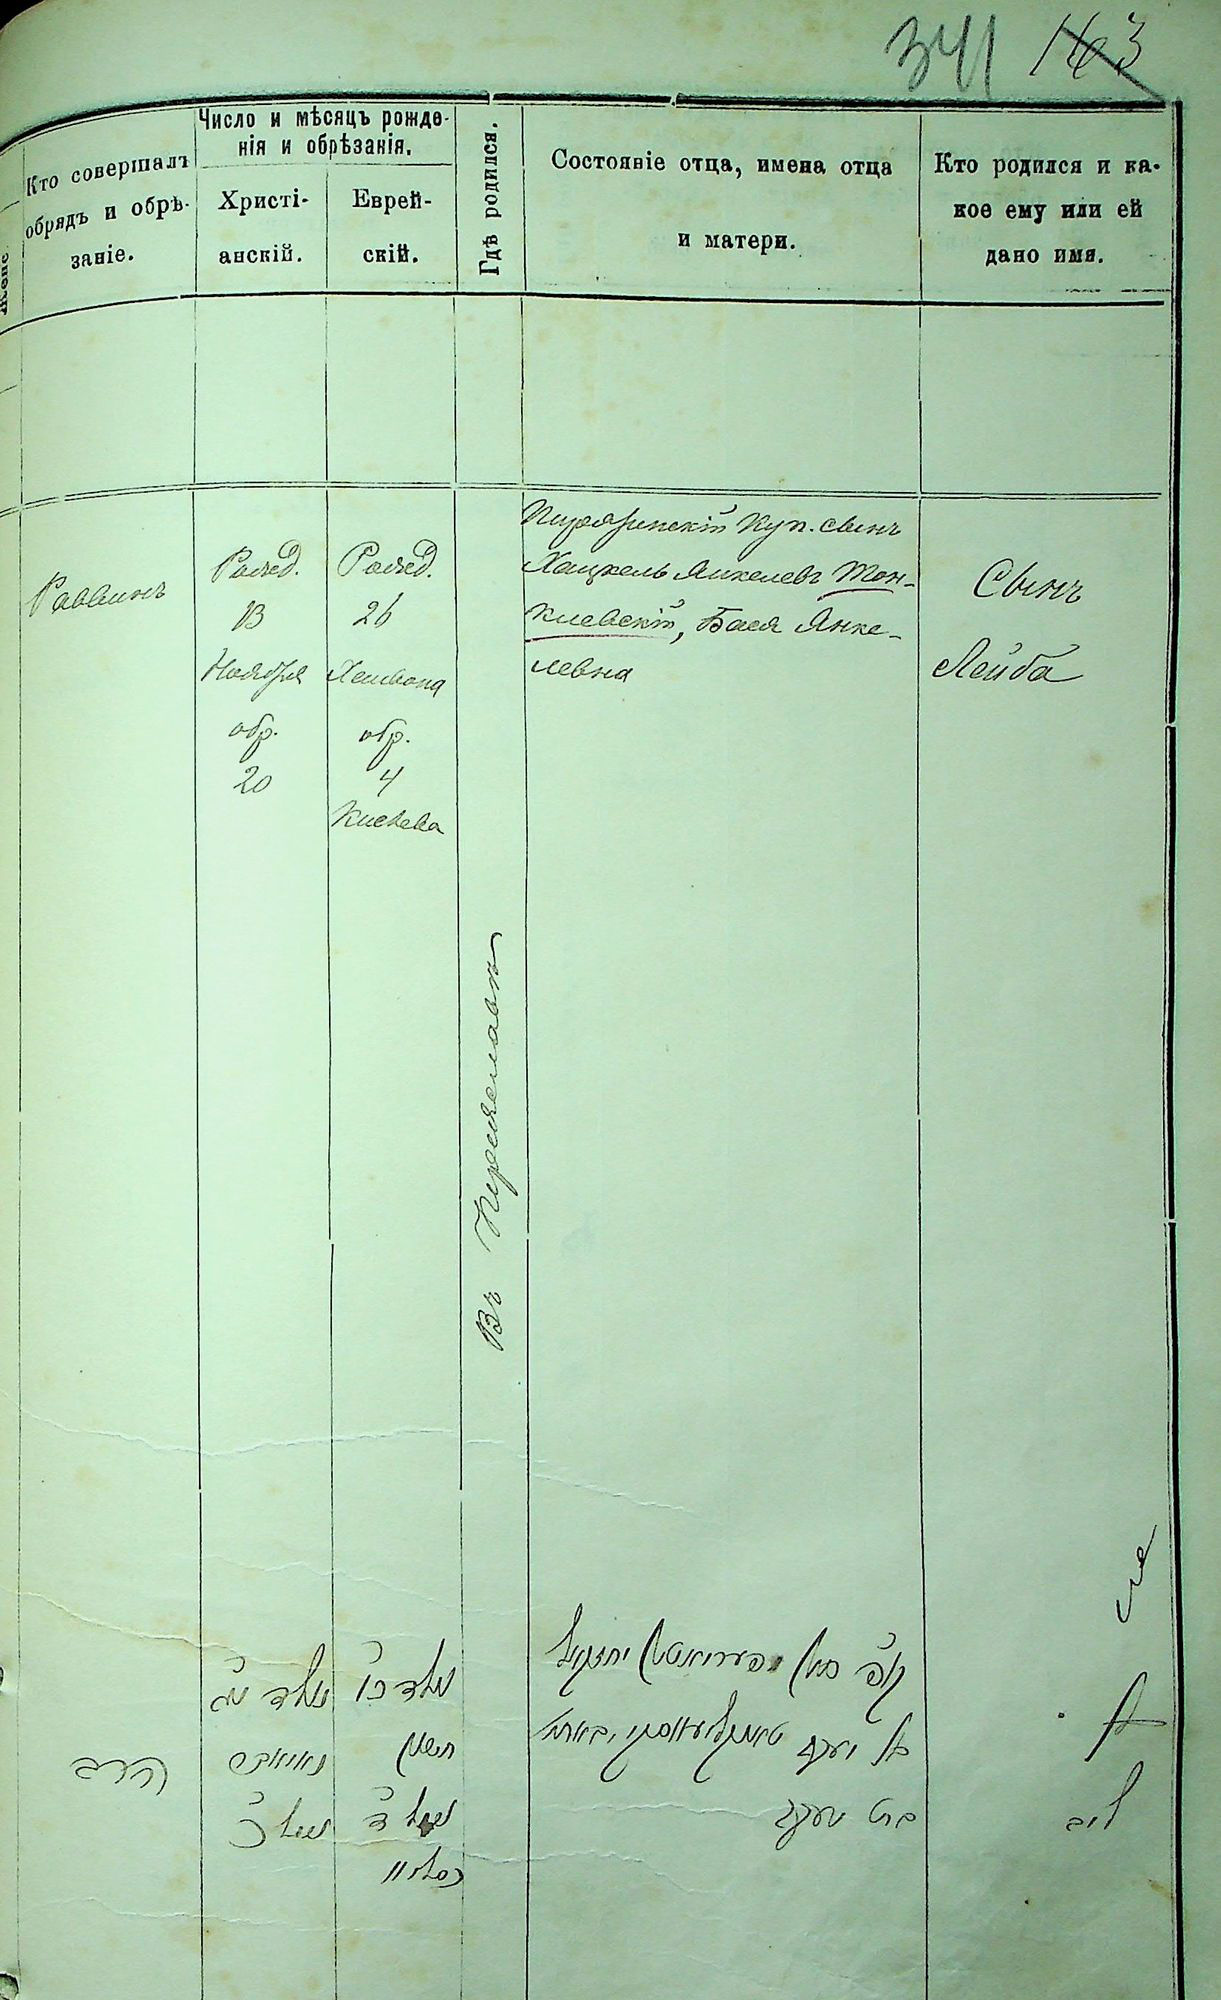 341 163
Кто совершалъ
обрядъ и обрѣ-
заніе.
Число и мѣсяцъ рожде-
нія и обрѣзанія.
Христі-
анскій.
Еврей-
скій.
Гдѣ родился.
Состояніе отца, имена отца
и матери.
Кто родился и ка-
кое ему или ей
дано имя.
Раввинъ
Рожд.
13
Ноября
обр.
20
Рожд.
26
Хешвона
обр.
4
Кислева
Въ Переяславѣ
Пирятинскій Куп. сынъ
Хацкель Янкелевъ Тон-
киевскій, Бася Янке-
левна
Сынъ
Лейба
הרב
נולד יג
נאיאבר
נימול כ
נולד כו
חשון
נימול ד
כסליו
בן יעקב
בת יעקב
בן
ליב